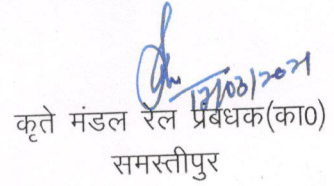 12/03/2021
कृते मंडल रेल प्रबंधक(का0)
समस्तीपुर